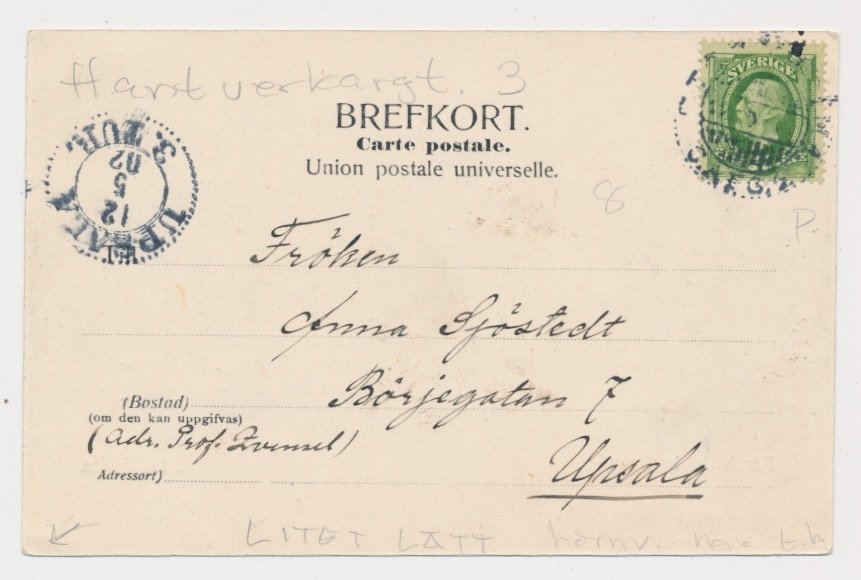 Harstverkargt. 3
BREFKORT.
Carte postale.
Union postale universelle.
SVERIGE
UPSALA
12
5
02
3. TUR.
8
P.
Fröken
Anna Sjöstedt
Börjegatan 7
(Bostad)
(om den kan uppgifvas)
(Adr. Prof.
Adressort)
Upsala
LITET LÄTT hörnv. t.h.